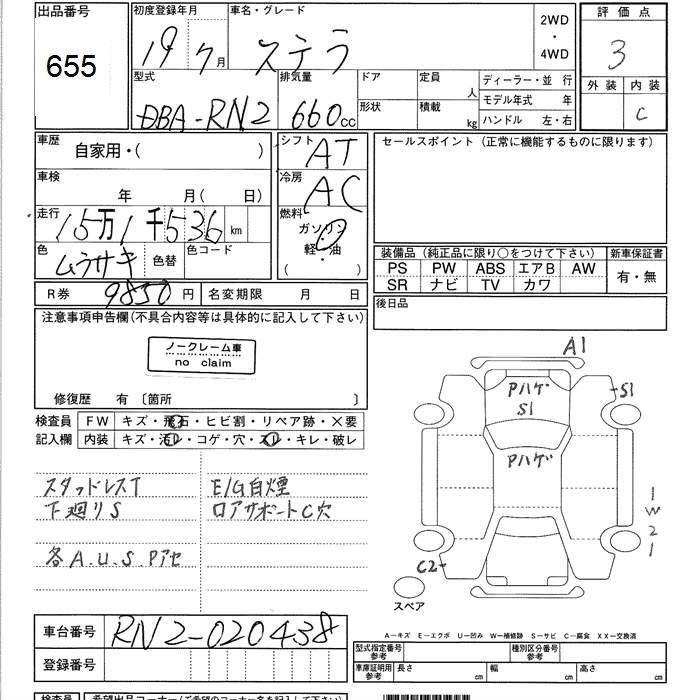 出品番号
655
初度登録年月
19 7月
車名・グレード
ステラ
2WD
・
4WD
評価点
3
外装 内装
C
型式
DBA-RN2
排気量
660cc
ドア
形状
定員
人
積載
kg
ディーラー・並行
モデル年式 年
ハンドル 左・右
車歴
自家用・( )
シフト
AT
セールスポイント (正常に機能するものに限ります)
車検
年 月(日)
冷房
AC
走行
15万1千536km
燃料
ガソリン
軽・油
( )
色
ムラサキ
色替
色コード
装備品 (純正品に限り○をつけて下さい)
新車保証書
PS PW ABS エアB AW
SR ナビ TV カワ
有・無
R券 9850円
名変期限 月 日
後日品
注意事項申告欄(不具合内容等は具体的に記入して下さい)
ノークレーム車
no claim
修復歴 有 〔箇所 〕
検査員
記入欄
FW キズ・飛石・ヒビ割・リペア跡・×要
内装 キズ・汚レ・コゲ・穴・スレ・キレ・破レ
スタッドレスT
下廻りS
各A.U.S.Pアセ
E/G白煙
ロアサポートC穴
A1
Pハゲ
S1
S1
Pハゲ
1
W
2
1
C2
スペア
車台番号
RN2-020438
登録番号
A－キズ E－エクボ U－凹み W－補修跡 S－サビ C－腐食 XX－交換済
型式指定番号
参考
種別区分番号
参考
車庫証明用
参考
長さ cm
幅 cm
高さ cm
検査員
希望出品コーナー(ご希望のコーナー名を記入下さい)